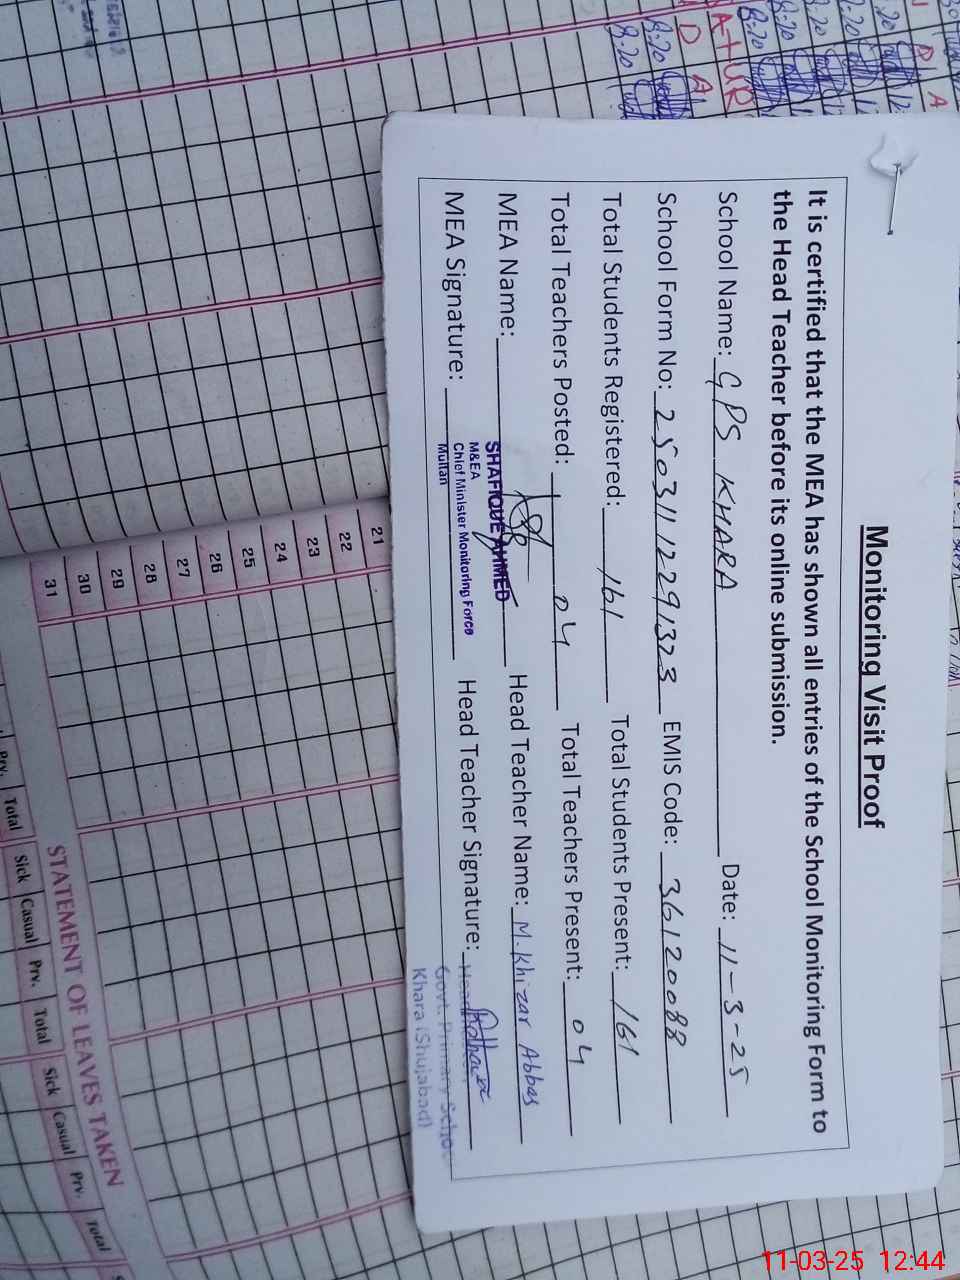 Monitoring Visit Proof
It is certified that the MEA has shown all entries of the School Monitoring Form to
the Head Teacher before its online submission.
School Name: GPS KHARA Date: 11-3-25
School Form No: 25031112291323 EMIS Code: 36120088
Total Students Registered: 161 Total Students Present: 161
Total Teachers Posted: 04 Total Teachers Present: 04
MEA Name: SHAFIQUE AHMED Head Teacher Name: M. Khizar Abbas
M&EA
Chief Minister Monitoring Force
Multan
MEA Signature: Head Teacher Signature:
Govt. Primary
Khara (Shujabad)
21
22
23
24
25
26
27
28
29
30
31
STATEMENT OF LEAVES TAKEN
Prv. Total Sick Casual Prv. Total Sick Casual Prv. Total
8:20
8:20
8:20
8:20
D A
11-03-25 12:44